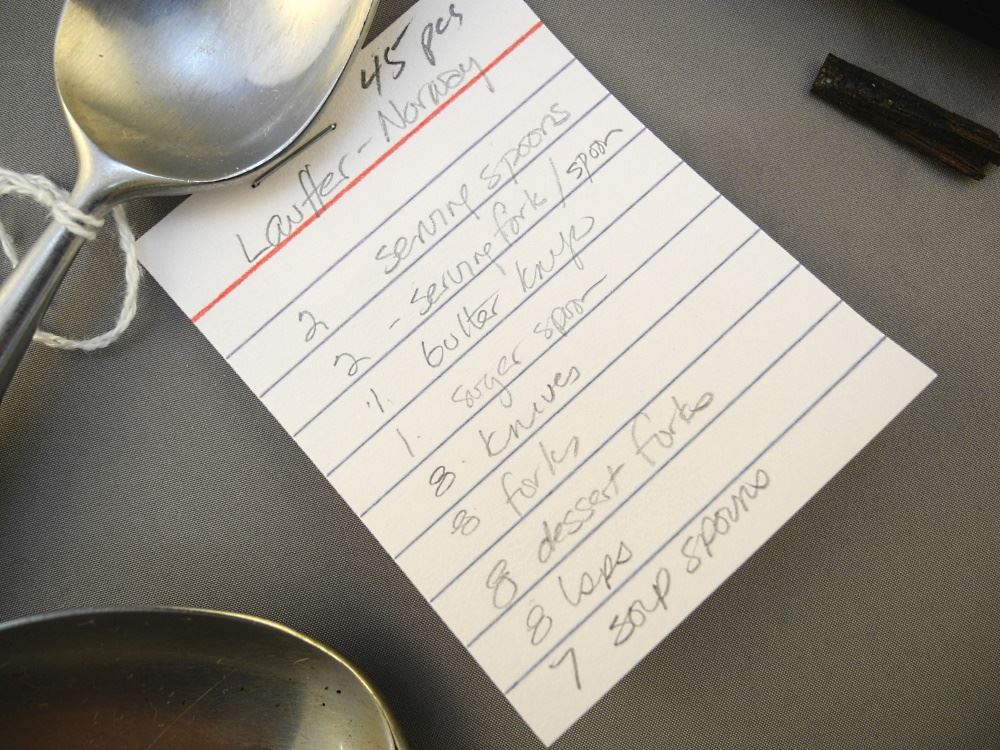 45 pcs
Lauffer - Norway
2 serving spoons
2 - serving fork / spoon
1. butter knife
1. suger spoon
8. knives
8 forks
8 dessert forks
8 tsps
7 soup spoons